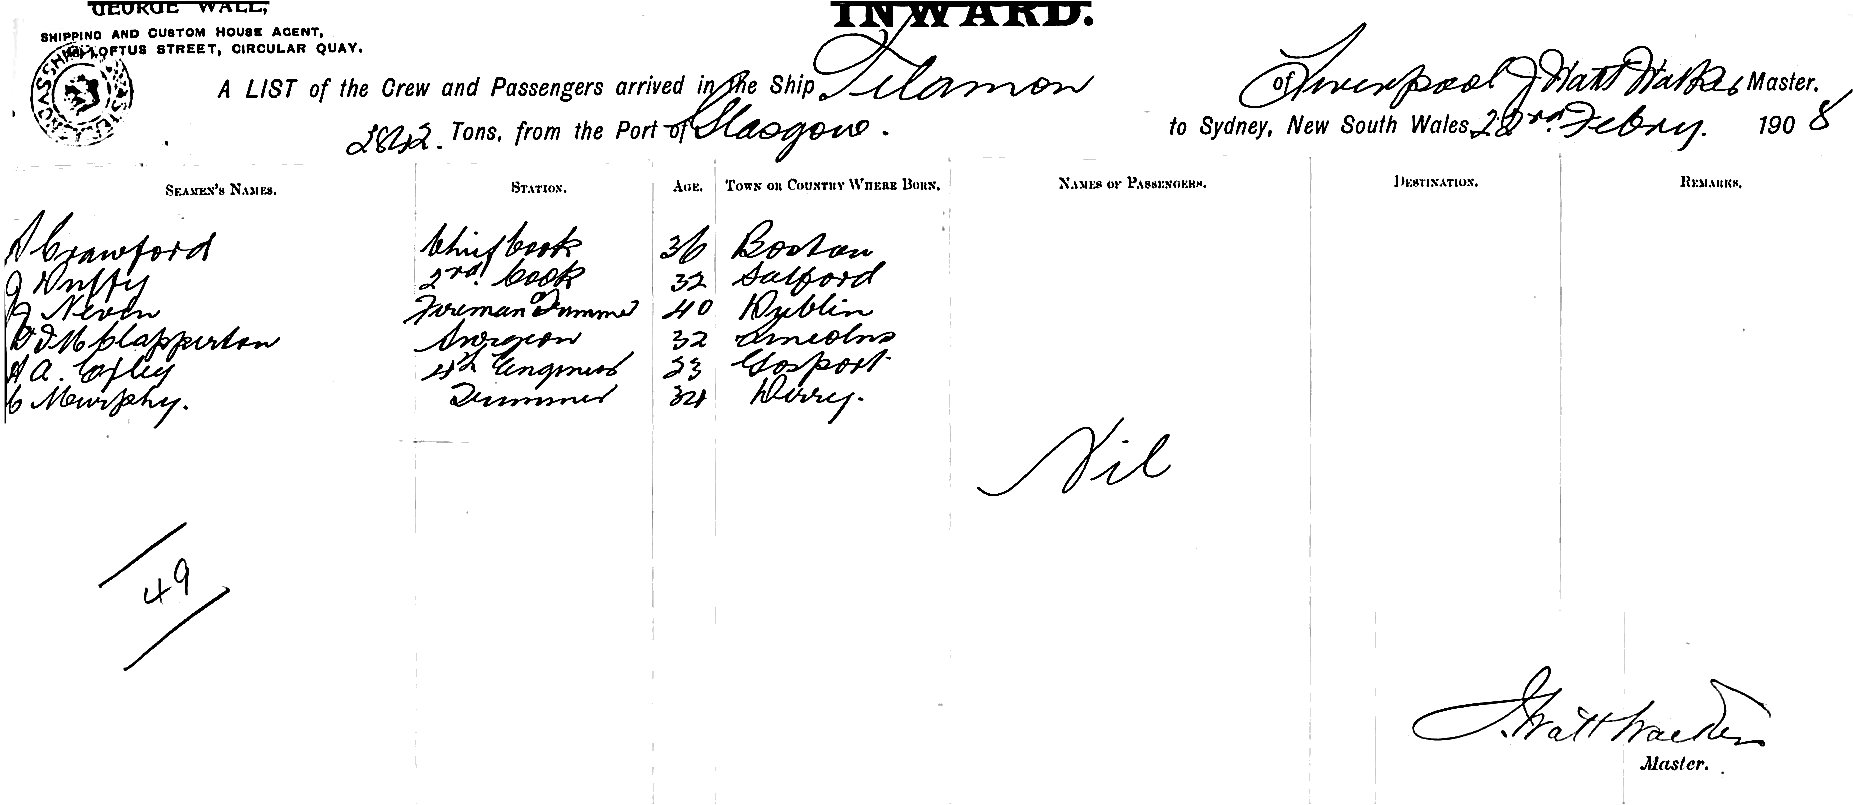 GEORGE WALL,
SHIPPING AND CUSTOM HOUSE AGENT,
LOFTUS STREET, CIRCULAR QUAY.
INWARD.
A LIST of the Crew and Passengers arrived in the Ship Telamon of Liverpool J Watt Master.
2842. Tons, from the Port of Glasgow. to Sydney, New South Wales, 22nd Febry. 1908
SEAMEN'S NAMES. STATION. AGE. TOWN OR COUNTRY WHERE BORN. NAMES OF PASSENGERS. DESTINATION. REMARKS.
A Crawford Chief Cook 36 Boston
J Duffy 2nd Cook 32 Salford
J Neven Fireman & Trimmer 40 Dublin
Clapperton Surgeon 32 Lincolns
A A. Oxley 4th Engineer 23 Gosport
C Murphy. Trimmer 34 Derry.
Nil
49
J. Watt
Master.